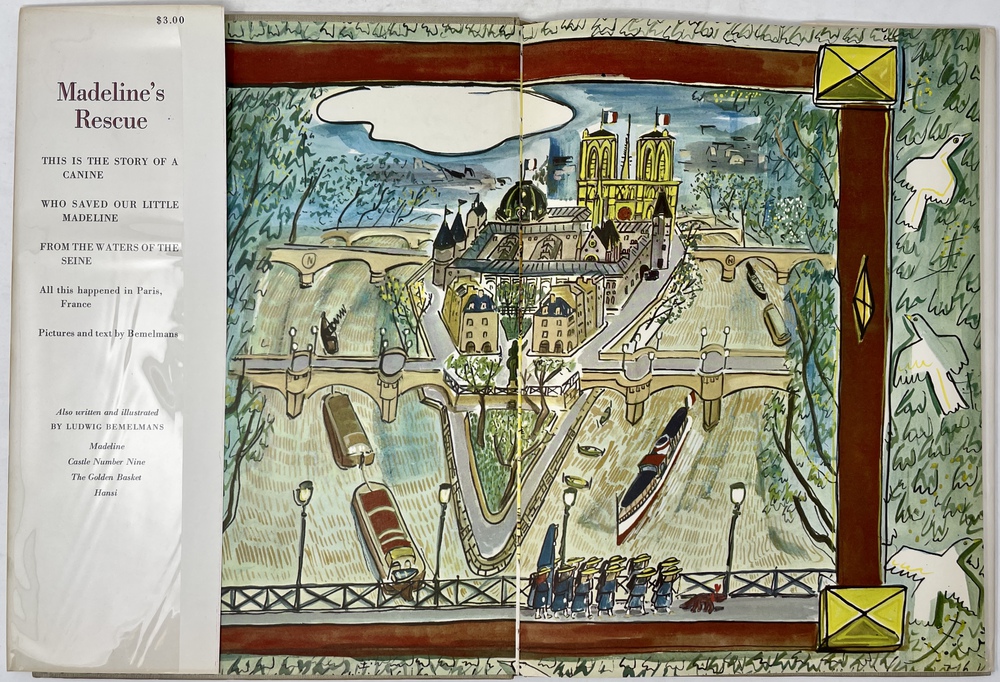 $3.00
Madeline's
Rescue
THIS IS THE STORY OF A
CANINE
WHO SAVED OUR LITTLE
MADELINE
FROM THE WATERS OF THE
SEINE
All this happened in Paris,
France
Pictures and text by Bemelmans
Also written and illustrated
BY LUDWIG BEMELMANS
Madeline
Castle Number Nine
The Golden Basket
Hansi
N
N